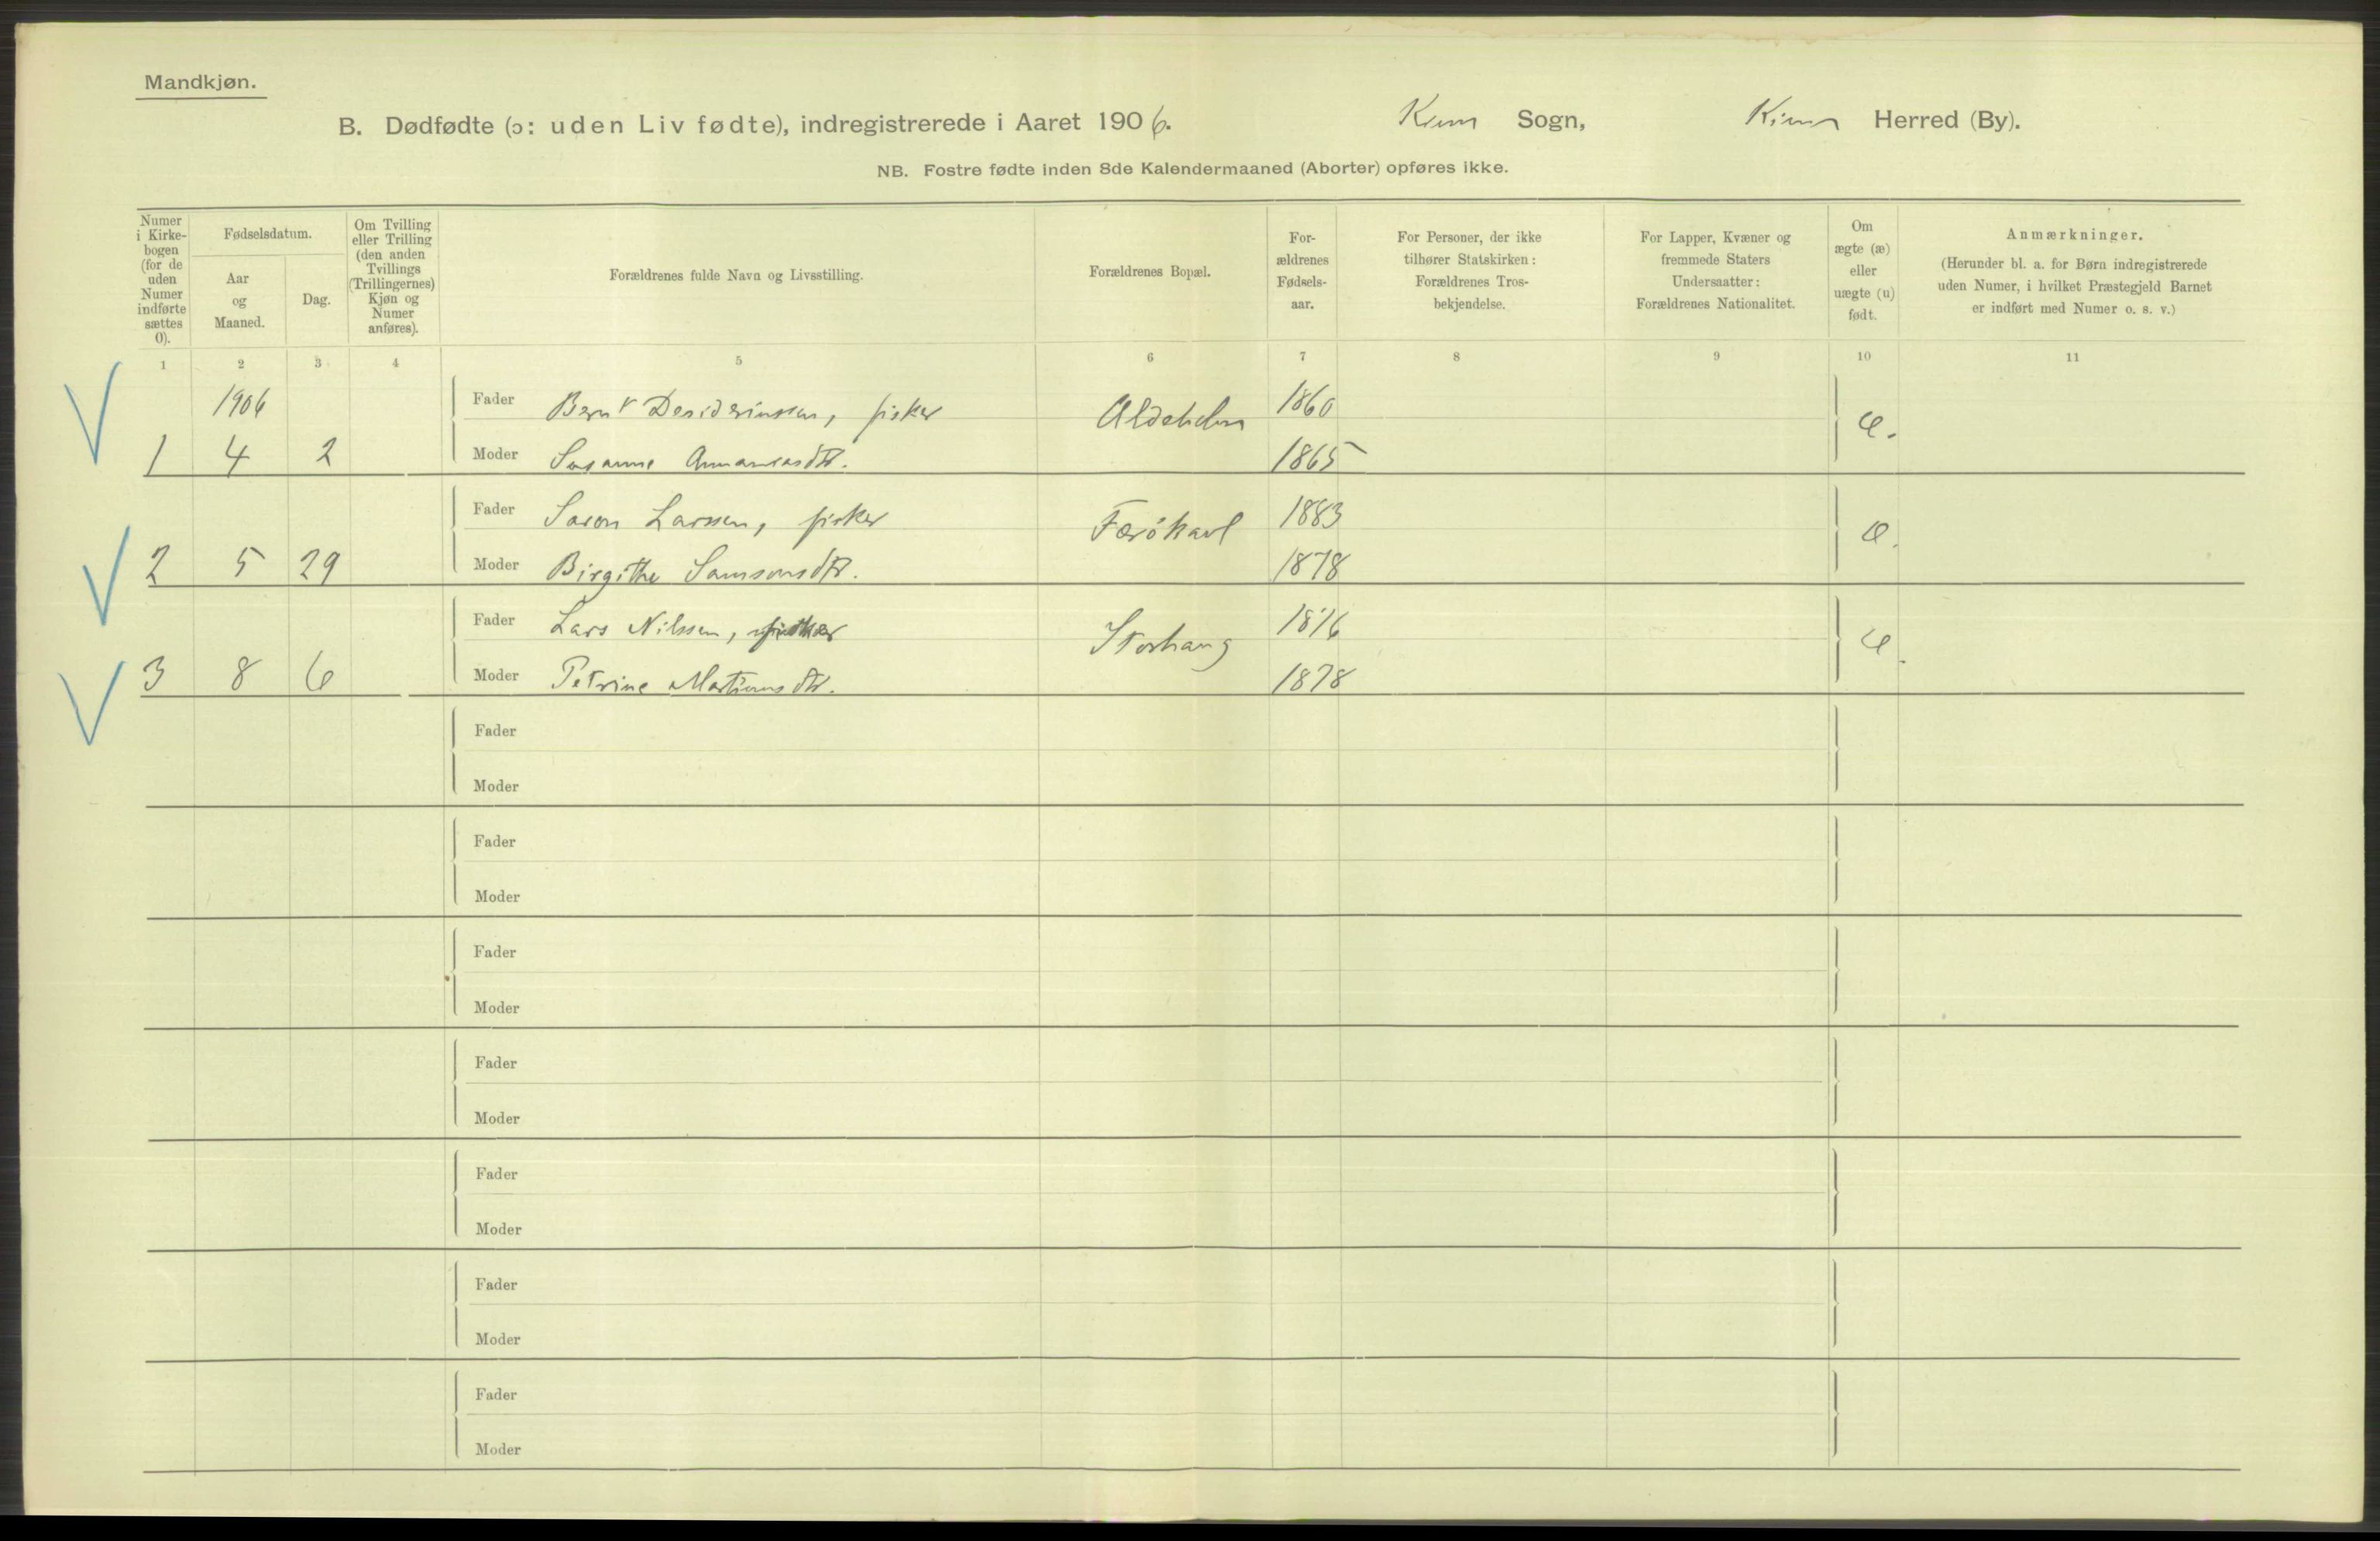 Mandkjøn.
B. Dødfødte (ɔ: uden Liv fødte), indregistrerede i Aaret 1906. Kinn Sogn, Kinn Herred (By).
NB. Fostre fødte inden 8de Kalendermaaned (Aborter) opføres ikke.
Numer i Kirkebogen (for de uden Numer indførte sættes 0).
Fødselsdatum.
Aar og Maaned.
Dag.
Om Tvilling eller Trilling (den anden Tvillings (Trillingernes) Kjøn og Numer anføres).
Forældrenes fulde Navn og Livsstilling.
Forældrenes Bopæl.
Forældrenes Fødselsaar.
For Personer, der ikke tilhører Statskirken: Forældrenes Trosbekjendelse.
For Lapper, Kvæner og fremmede Staters Undersaatter: Forældrenes Nationalitet.
Om ægte (æ) eller uægte (u) født.
Anmærkninger.
(Herunder bl. a. for Børn indregistrerede uden Numer, i hvilket Præstegjeld Barnet er indført med Numer o. s. v.)
1 2 3 4 5 6 7 8 9 10 11
1906 Fader Bernt Desideriussen, fisker Aldeholm 1860 æ.
1 4 2 Moder Susanne Ananiasdtr. 1865
Fader Saron Larssen, fisker Færökavl 1883 æ.
2 5 29 Moder Birgithe Samsonsdtr. 1878
Fader Lars Nilssen, fisker Storhaug 1876 æ.
3 8 6 Moder Petrine Martinusdtr. 1878
Fader
Moder
Fader
Moder
Fader
Moder
Fader
Moder
Fader
Moder
Fader
Moder
Fader
Moder